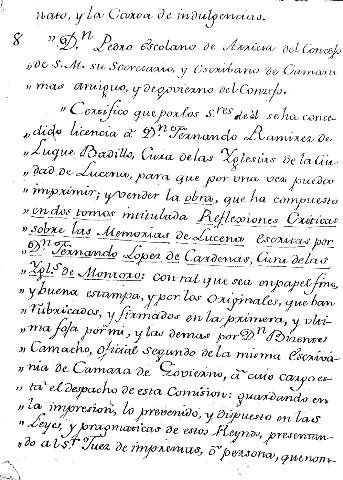 nato, y la Carta de indulgencias.
8 " D.n Pedro Escolano de Arrieta del Consejo
" de S. M. su Secretario, y Escribano de Camara
mas antiguo, y de govierno del Consejo.
" Certifico que por los S.res de él se ha conce-
" dido licencia á D.n Fernando Ramirez de
" Luque Badillo, Cura de las Yglesias de la Ciu-
" dad de Lucena, para que por una vez pueda
" imprimir; y vender la obra, que ha compuesto
" en dos tomos intitulada Reflexiones Criticas
" sobre las Memorias de Lucena escritas por
" D.n Fernando Lopez de Cardenas, Cura de las
" Ygl.s de Montoro: con tal que sea en papel fino,
" y buena estampa, y por los Originales, que ban
" rubricados, y firmados en la primera, y ulti-
" ma foja por mi, y las demas por D.n Vicente
" Camacho, oficial segundo de la misma Escriva-
" nia de Camara de Govierno, á cuio cargo es-
" ta el despacho de esta Comision: guardando en
" la impresion, lo prevenido, y dispuesto en las
" Leyes, y pragmaticas de estos Reynos, presentan-
" do al S.r Juez de imprentas, ó persona, que nom-